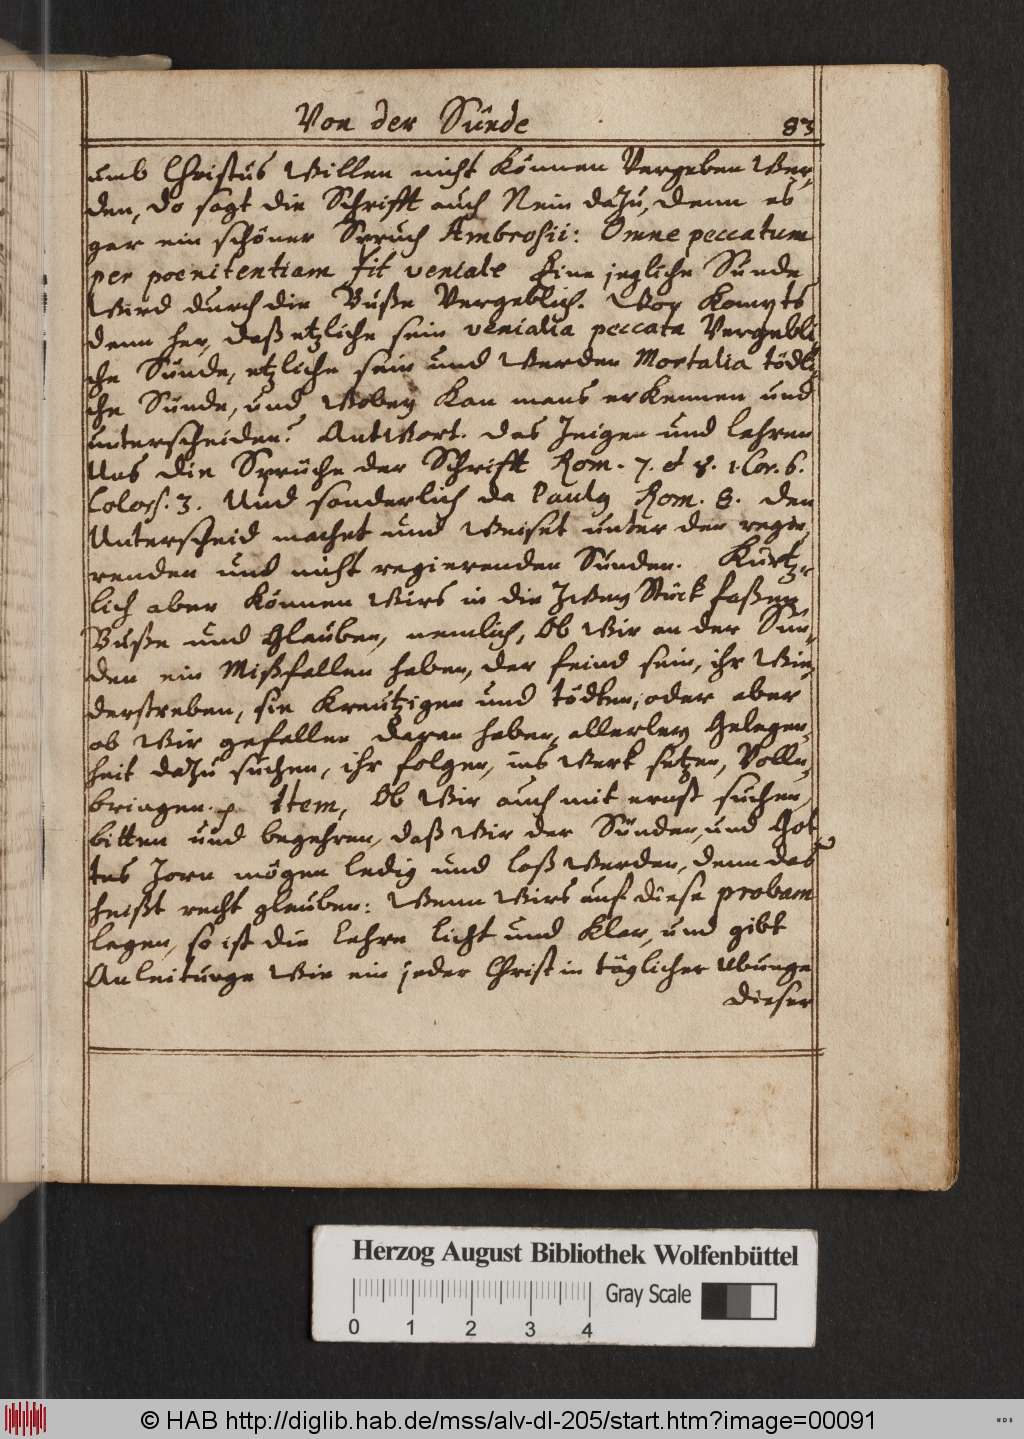 Von der Sünde 83
umb Christus Willen nicht können Vergeben Wer„
den, do sagt die Schrifft auch Nein dazu, denn es
gar ein schöner Spruch Ambrosii: Omne peccatum
per poenitentiam fit veniale Eine jegliche Sünde
Wird durch die Buße Vergeblich. Woy Komts
denn her, daß etzliche sein venialia peccata Vergebli„
che Sünde, etzliche sein und Werden Mortalia tödtli„
che Sünde, und Wobey Kan mans erkennen und
unterscheiden? AntWort. das Zeigen und lehren
Uns die Sprüche der Schrifft Rom. 7. et 8. 1. Cor. 6.
Coloss. 3. Und sonderlich da Paulus Rom. 8. den
Unterscheid machet und Weiset unter den regie„
renden und nicht regierenden Sünden. Kürtz„
lich aber können Wirs in die Zwey Stück faßen
Buße und Glauben, nemlich, Ob Wir an der Sün„
den ein Mißfallen haben, der feind sein, ihr Wie„
derstreben, sie Kreutzigen und tödten, oder aber
ob Wir gefallen daran haben, allerley Gelegen„
heit dazu suchen, ihr folgen, ins Werk setzen, Volln„
bringen. Item, Ob Wir auch mit ernst suchen,
bitten und begehren, daß Wir der Sünden, und Got„
tes Zorn mögen ledig und loß Werden, denn das
heißt recht glauben: Wenn Wirs auf diese probam
legen, so ist die Lehre licht und Klar, und gibt
Anleitunge Wie ein jeder Christ in täglicher Ubunge
dieser
Herzog August Bibliothek Wolfenbüttel
Gray Scale
0 1 2 3 4
© HAB http://diglib.hab.de/mss/alv-dl-205/start.htm?image=00091